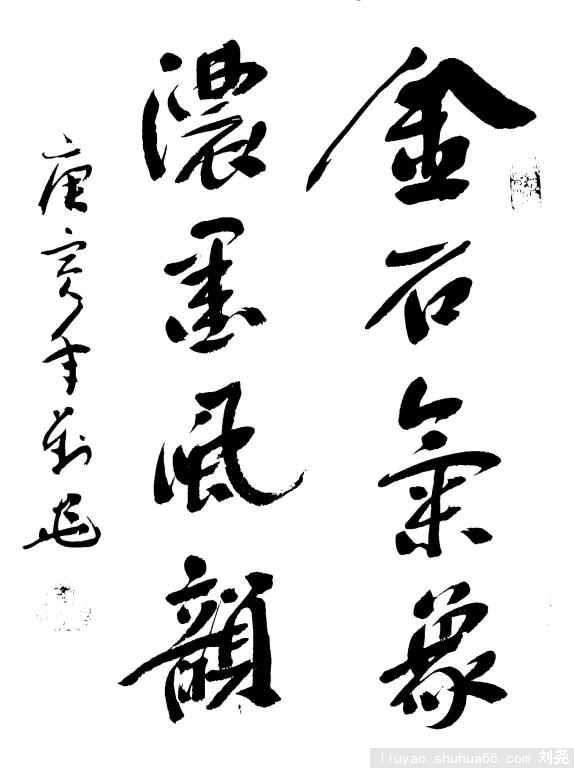 金石氣象
濃墨風韻
庚寅年劉尧
liuyao.shuhua66.com 刘尧